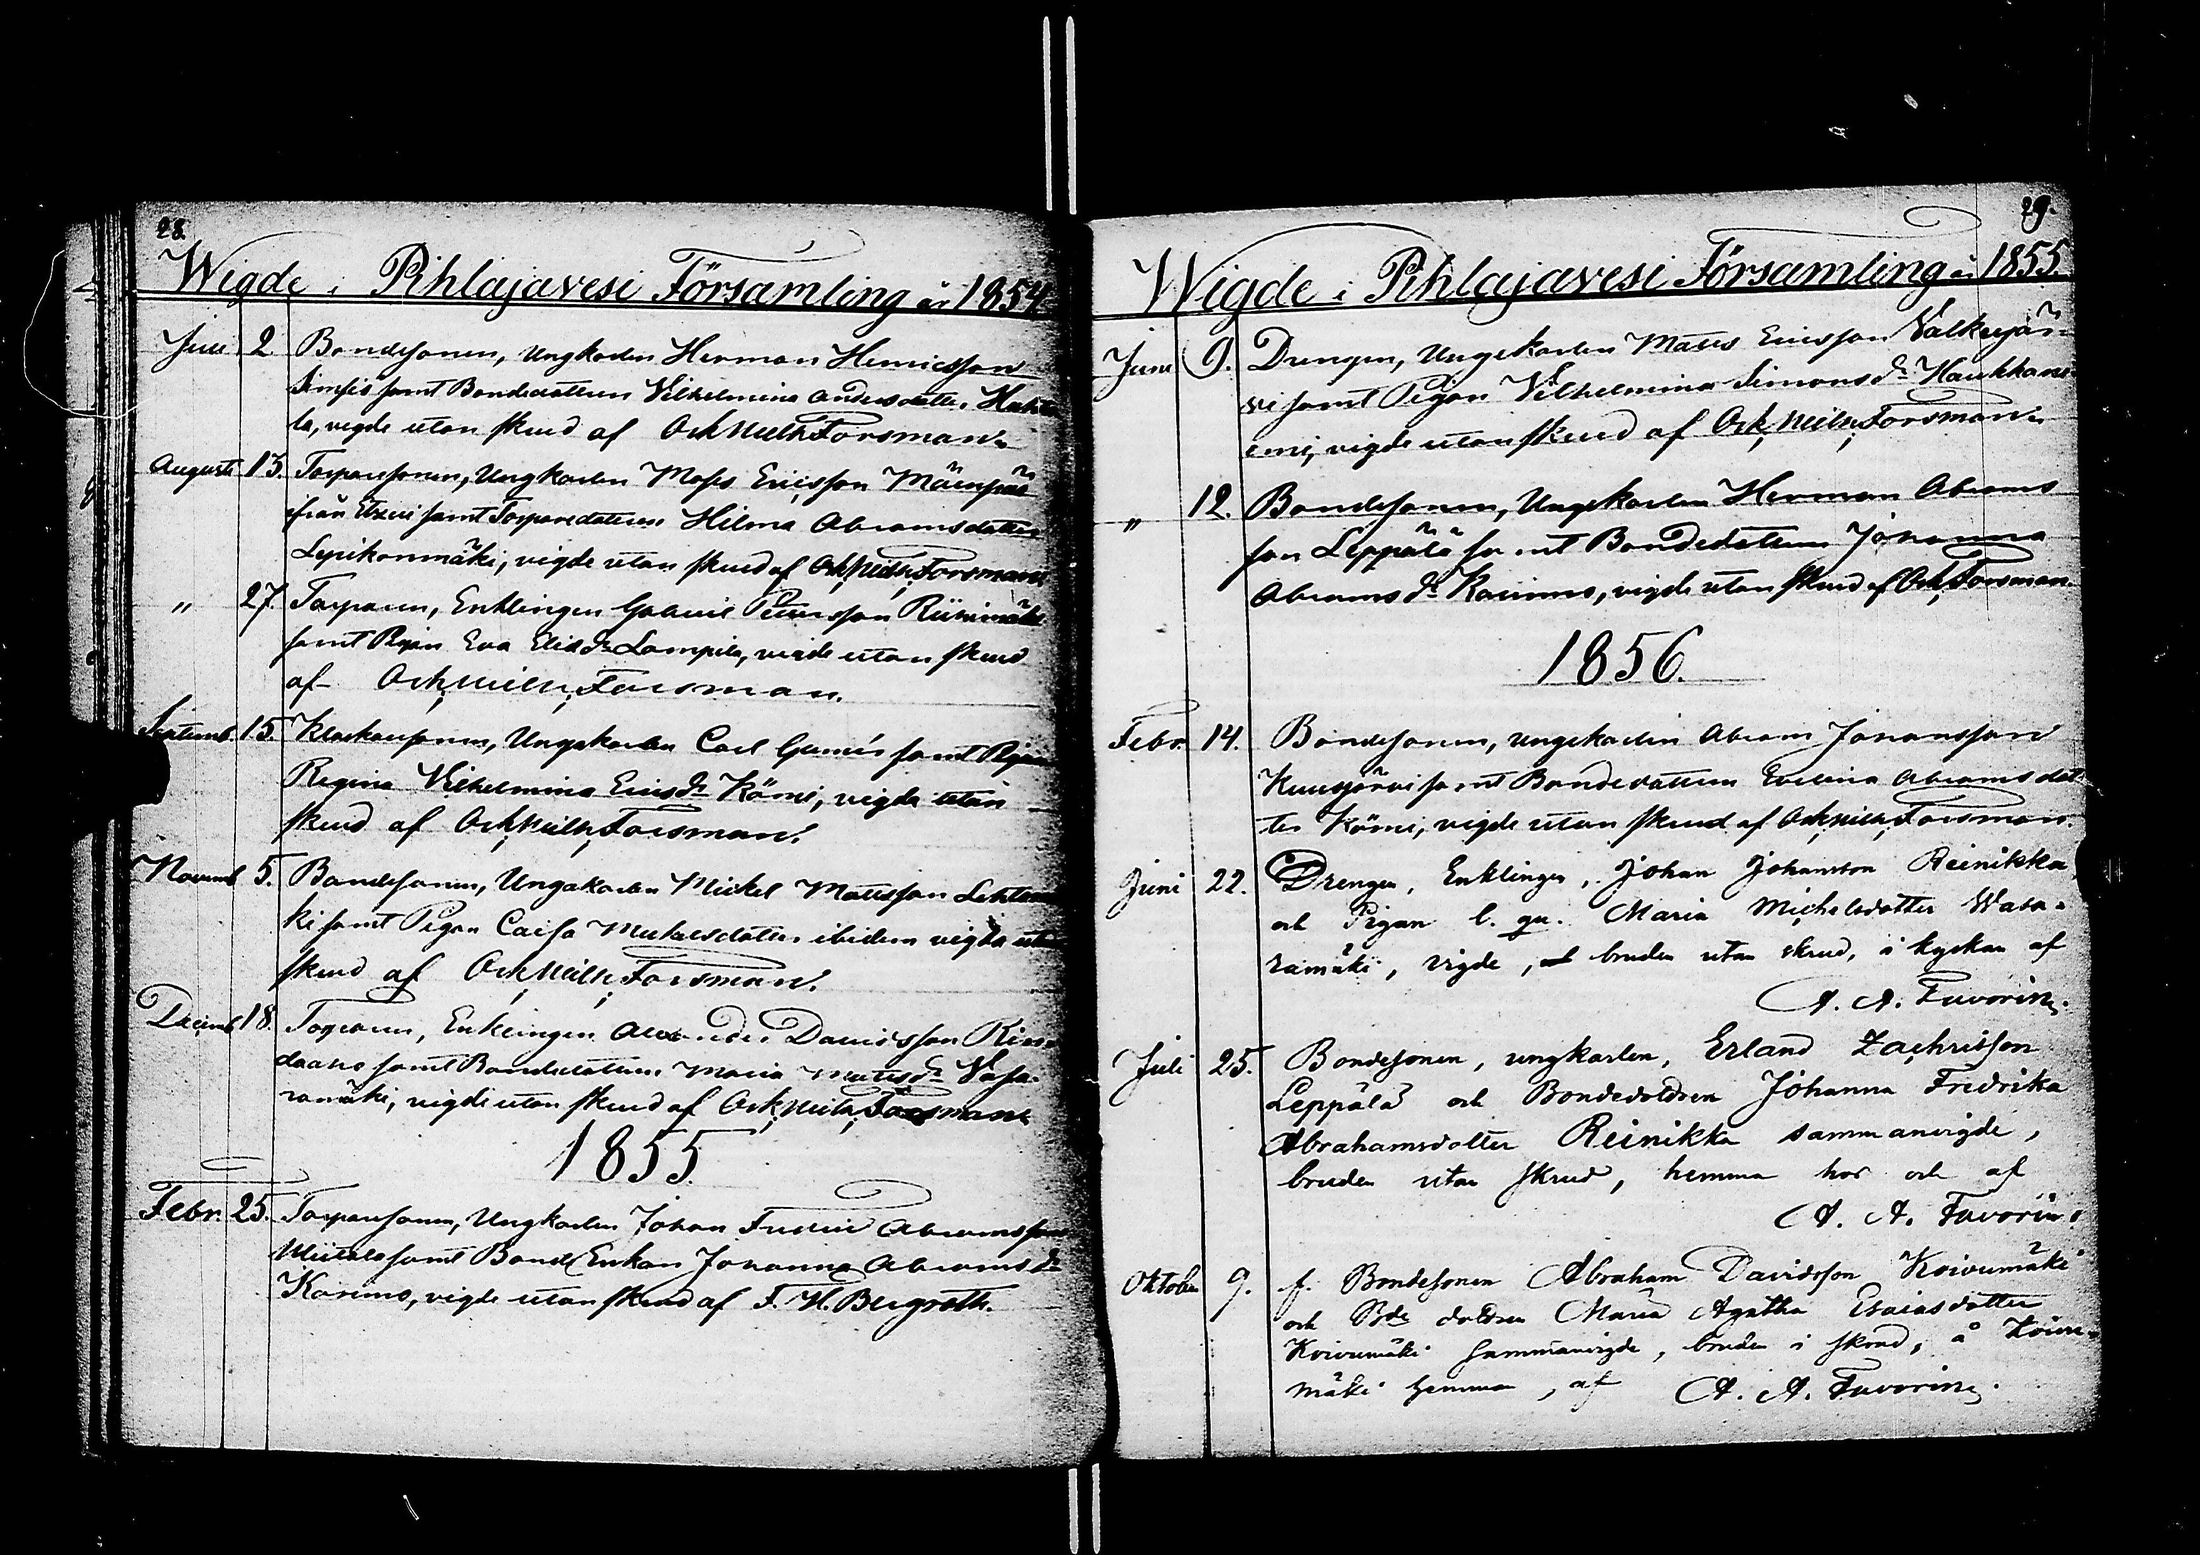 28.
Wigde i Pihlajavesi Församling år 1854
Juli 2. Bondesonen, Ungkarlen Herman Henricsson
Simsiö samt Bondedottren Vilhelmina Andersdotter
la, vigde utan skrud af Och Meth, Forsman.
Augusti 13. Torparesonen, Ungkarlen Moses Ericsson Mäenpää
från Etseri samt Torparedottren Hilma Abramsdotter
Lepikonmäki, vigde utan skrud af Forsman.
" 27. Torparen, Enklingen Gabriel Petersson Riihimäki
samt Pigan Eva Eliæ dr Lampila, vigde utan skrud
af Forsman.
Septemb. 15. Klockaresonen, Ungkarlen Carl samt Pigan
Regina Vilhelmina Ericsdr Körni, vigde utan
skrud af Forsman.
Novemb. 5. Bondesonen, Ungakarlen Mickel Mattsson
ki samt Pigan Caisa Mickelsdotter ibidem vigda utan
skrud af Forsman.
Decemb. 18. Torparen, Enklingen Alexander Davidsson
samt Bondedottren Maria Mattsdr Vasa-
ramäki, vigde utan skrud af Forsman
1855.
Febr. 25. Torparesonen, Ungkarlen Johan Fredric Abramsson
samt Bond Enkan Johanna Abrams dr
Karimo, vigde utan skrud af F. H. Bergroth.
29.
Wigde i Pihlajavesi Församling år 1855.
Juni 9. Drengen, Ungekarlen Matts Ericsson Valkeajär-
vi samt Pigan Vilhelmina Simons dr Haukkani-
emi, vigde utan skrud af Forsman.
" 12. Bondesonen, Ungekarlen Herman Abrams
son Leppälä samt Bondedottren Johanna
Abrams dr Karimo, vigde utan skrud af Forsman.
1856.
Febr. 14. Bondesonen, ungekarlen Abram Johansson
Kuusjärvi samt Bondedottren Evelina Abramsdot
ter Körni, vigde utan skrud af Forsman.
Juni 22. Drengen, Enklingen, Johan Johansson Reinikka
och Pigan l. qv. Maria Michelsdotter Wasa-
ramäki, vigde, bruden utan skrud, i kyrkan af
A. A. Favorin.
Juli 25. Bondesonen, ungkarlen, Erland Zachrisson
Leppälä och Bondedottren Johanna Fredrika
Abrahamsdotter Reinikka sammanvigde,
bruden utan skrud, hemma hos och af
A. A. Favorin.
Oktober 9. f. Bondesonen Abraham Davidsson Koivumäki
och Bde dottren Maria Agatha Esaiasdotter
Koivumäki sammanvigde, bruden i skrud, å Koivu-
mäki hemman, af A. A. Favorin.